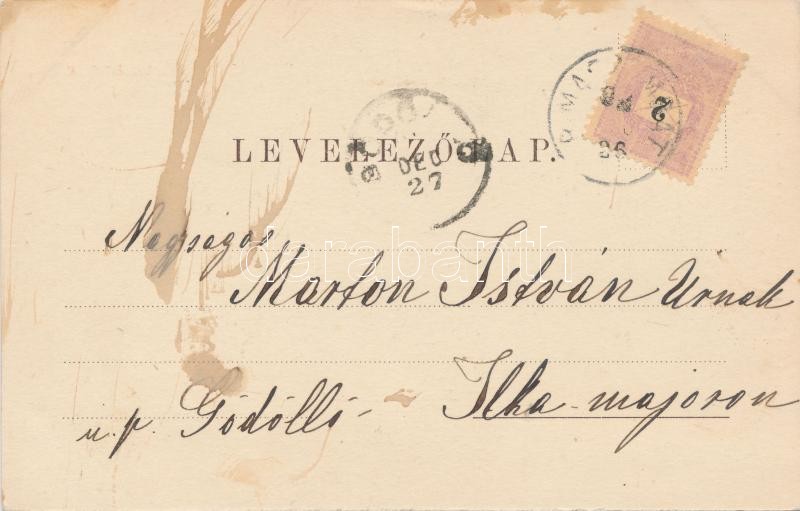 2
LEVELEZŐ-LAP.
DEC
27
86
Nagyságos
Marton István Urnak
u. p. Gödöllő - Ilka-majoron
darabanth